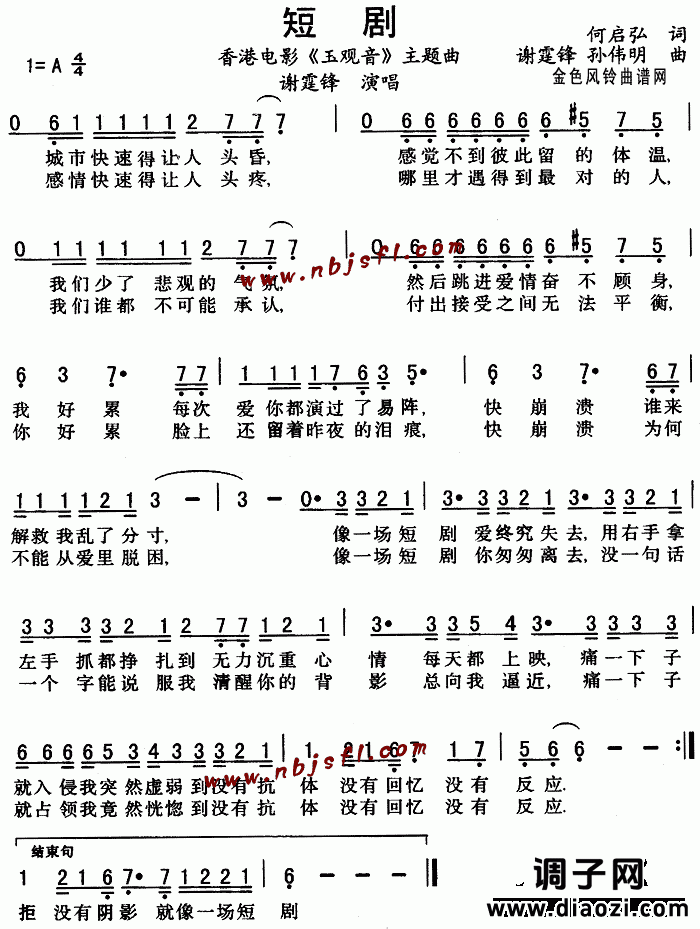 短 剧
1=A 4/4
香港电影《玉观音》主题曲
谢霆锋 演唱
何启弘 词
谢霆锋 孙伟明 曲
金色风铃曲谱网
0 6 1 1 1 1 1 2 7 7 7 | 0 6 6 6 6 6 6 6 6 #5 7 5 |
城市快速得让人 头昏, 感觉不到彼此留 的 体 温,
感情快速得让人 头疼, 哪里才遇得到最 对 的 人,
0 1 1 1 1 1 1 2 7 7 7 | 0 6 6 6 6 6 6 6 6 #5 7 5 |
我们少了 悲观的 气氛, 然后跳进爱情奋 不 顾 身,
我们谁都 不可能 承认, 付出接受之间无 法 平 衡,
www.nbjsfl.com
6 3 7· 7 7 | 1 1 1 1 7 6 3 5· | 6 3 7· 6 7 |
我 好 累 每次 爱你都演过了易阵, 快 崩 溃 谁来
你 好 累 脸上 还留着昨夜的泪痕, 快 崩 溃 为何
1 1 1 1 2 1 3 - | 3 - 0· 3 3 3 2 1 | 3· 3 3 3 3· 3 3 2 1 |
解救我乱了分寸, 像一场短 剧 爱终究失去, 用右手拿
不能从爱里脱困, 像一场短 剧 你匆匆离去, 没一句话
3 3 3 3 3 2 1 2 7 7 1 2 1 | 3· 3 3 3 3 5· 3 3 2 1 |
左手 抓都挣扎到 无力沉重心 情 每天都 上映, 痛一下子
一个 字能说服我 清醒你的背 影 总向我 逼近, 痛一下子
6 6 6 6 6 5 3 3 3 3 3 3 2 1 | 1 2 1 1 6 7 1 7 | 5 6 6 - - :||
就入侵我突然虚弱到没有抗 体 没有回忆 没有 反应.
就占领我竟然恍惚到没有抗 体 没有回忆 没有 反应.
www.nbjsfl.com
结束句
1 2 1 6 7· 7 2 2 2 1 | 6 - - - ||
拒 没有阴影 就像一场短 剧
调子网
www.diaozi.com